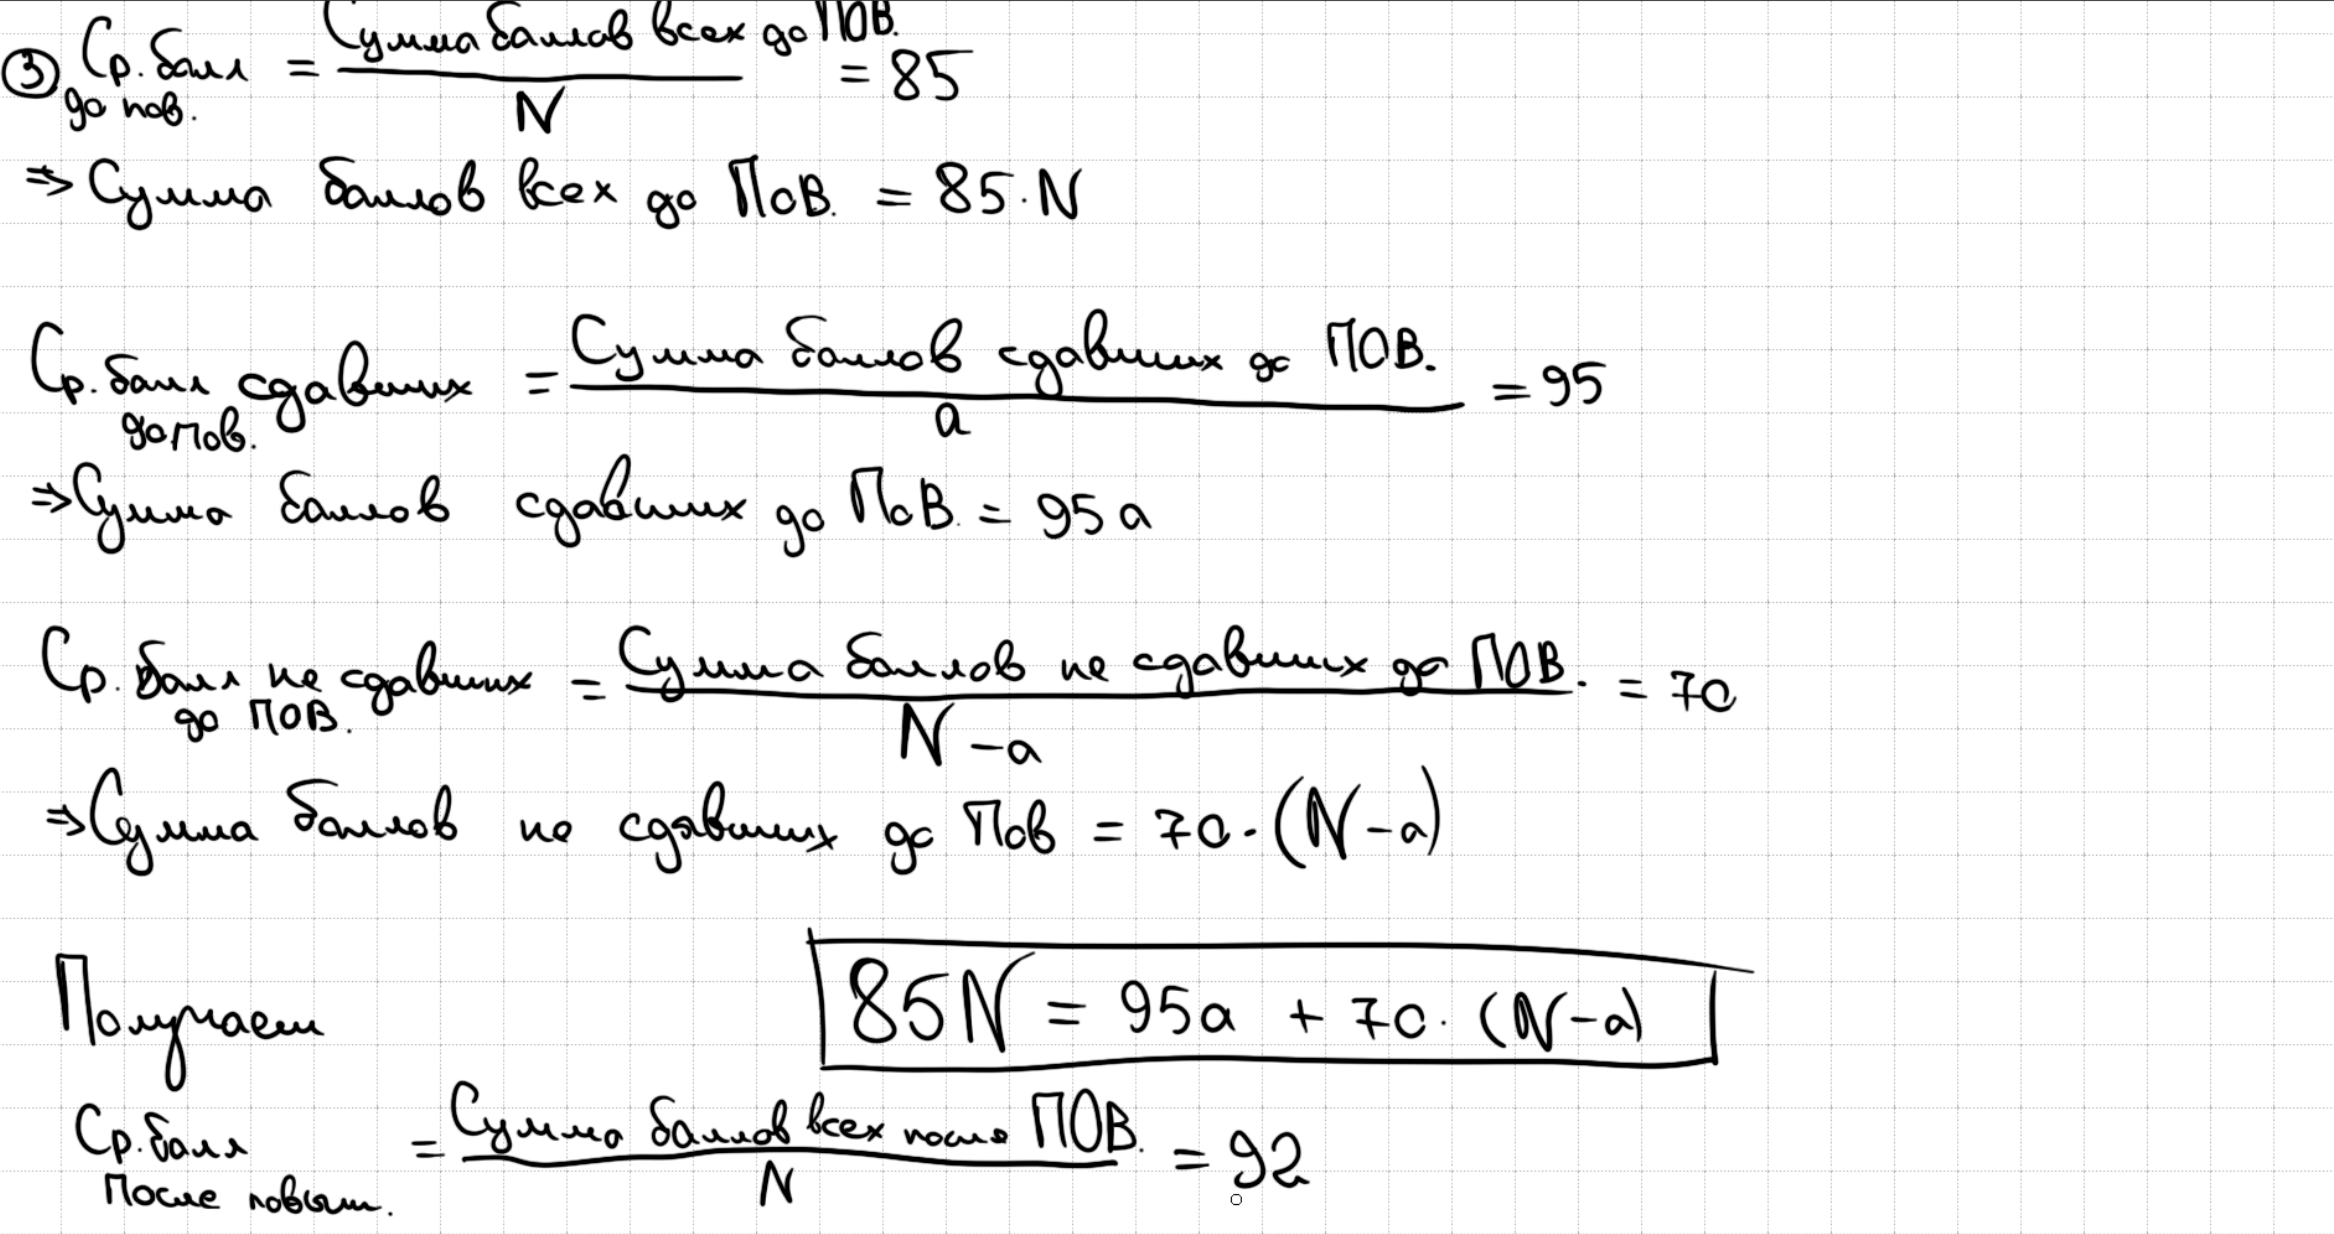 ③ Ср. балл до пов. = Сумма баллов всех до ПОВ. / N = 85
⇒ Сумма баллов всех до ПоВ. = 85·N
Ср. балл сдавших до пов. = Сумма баллов сдавших до ПОВ. / a = 95
⇒ Сумма баллов сдавших до ПоВ. = 95a
Ср. балл не сдавших до ПОВ. = Сумма баллов не сдавших до ПОВ. / N-a = 70
⇒ Сумма баллов не сдавших до Пов = 70·(N-a)
Получаем 85N = 95a + 70·(N-a)
Ср. балл После повыш. = Сумма баллов всех после ПОВ. / N = 92